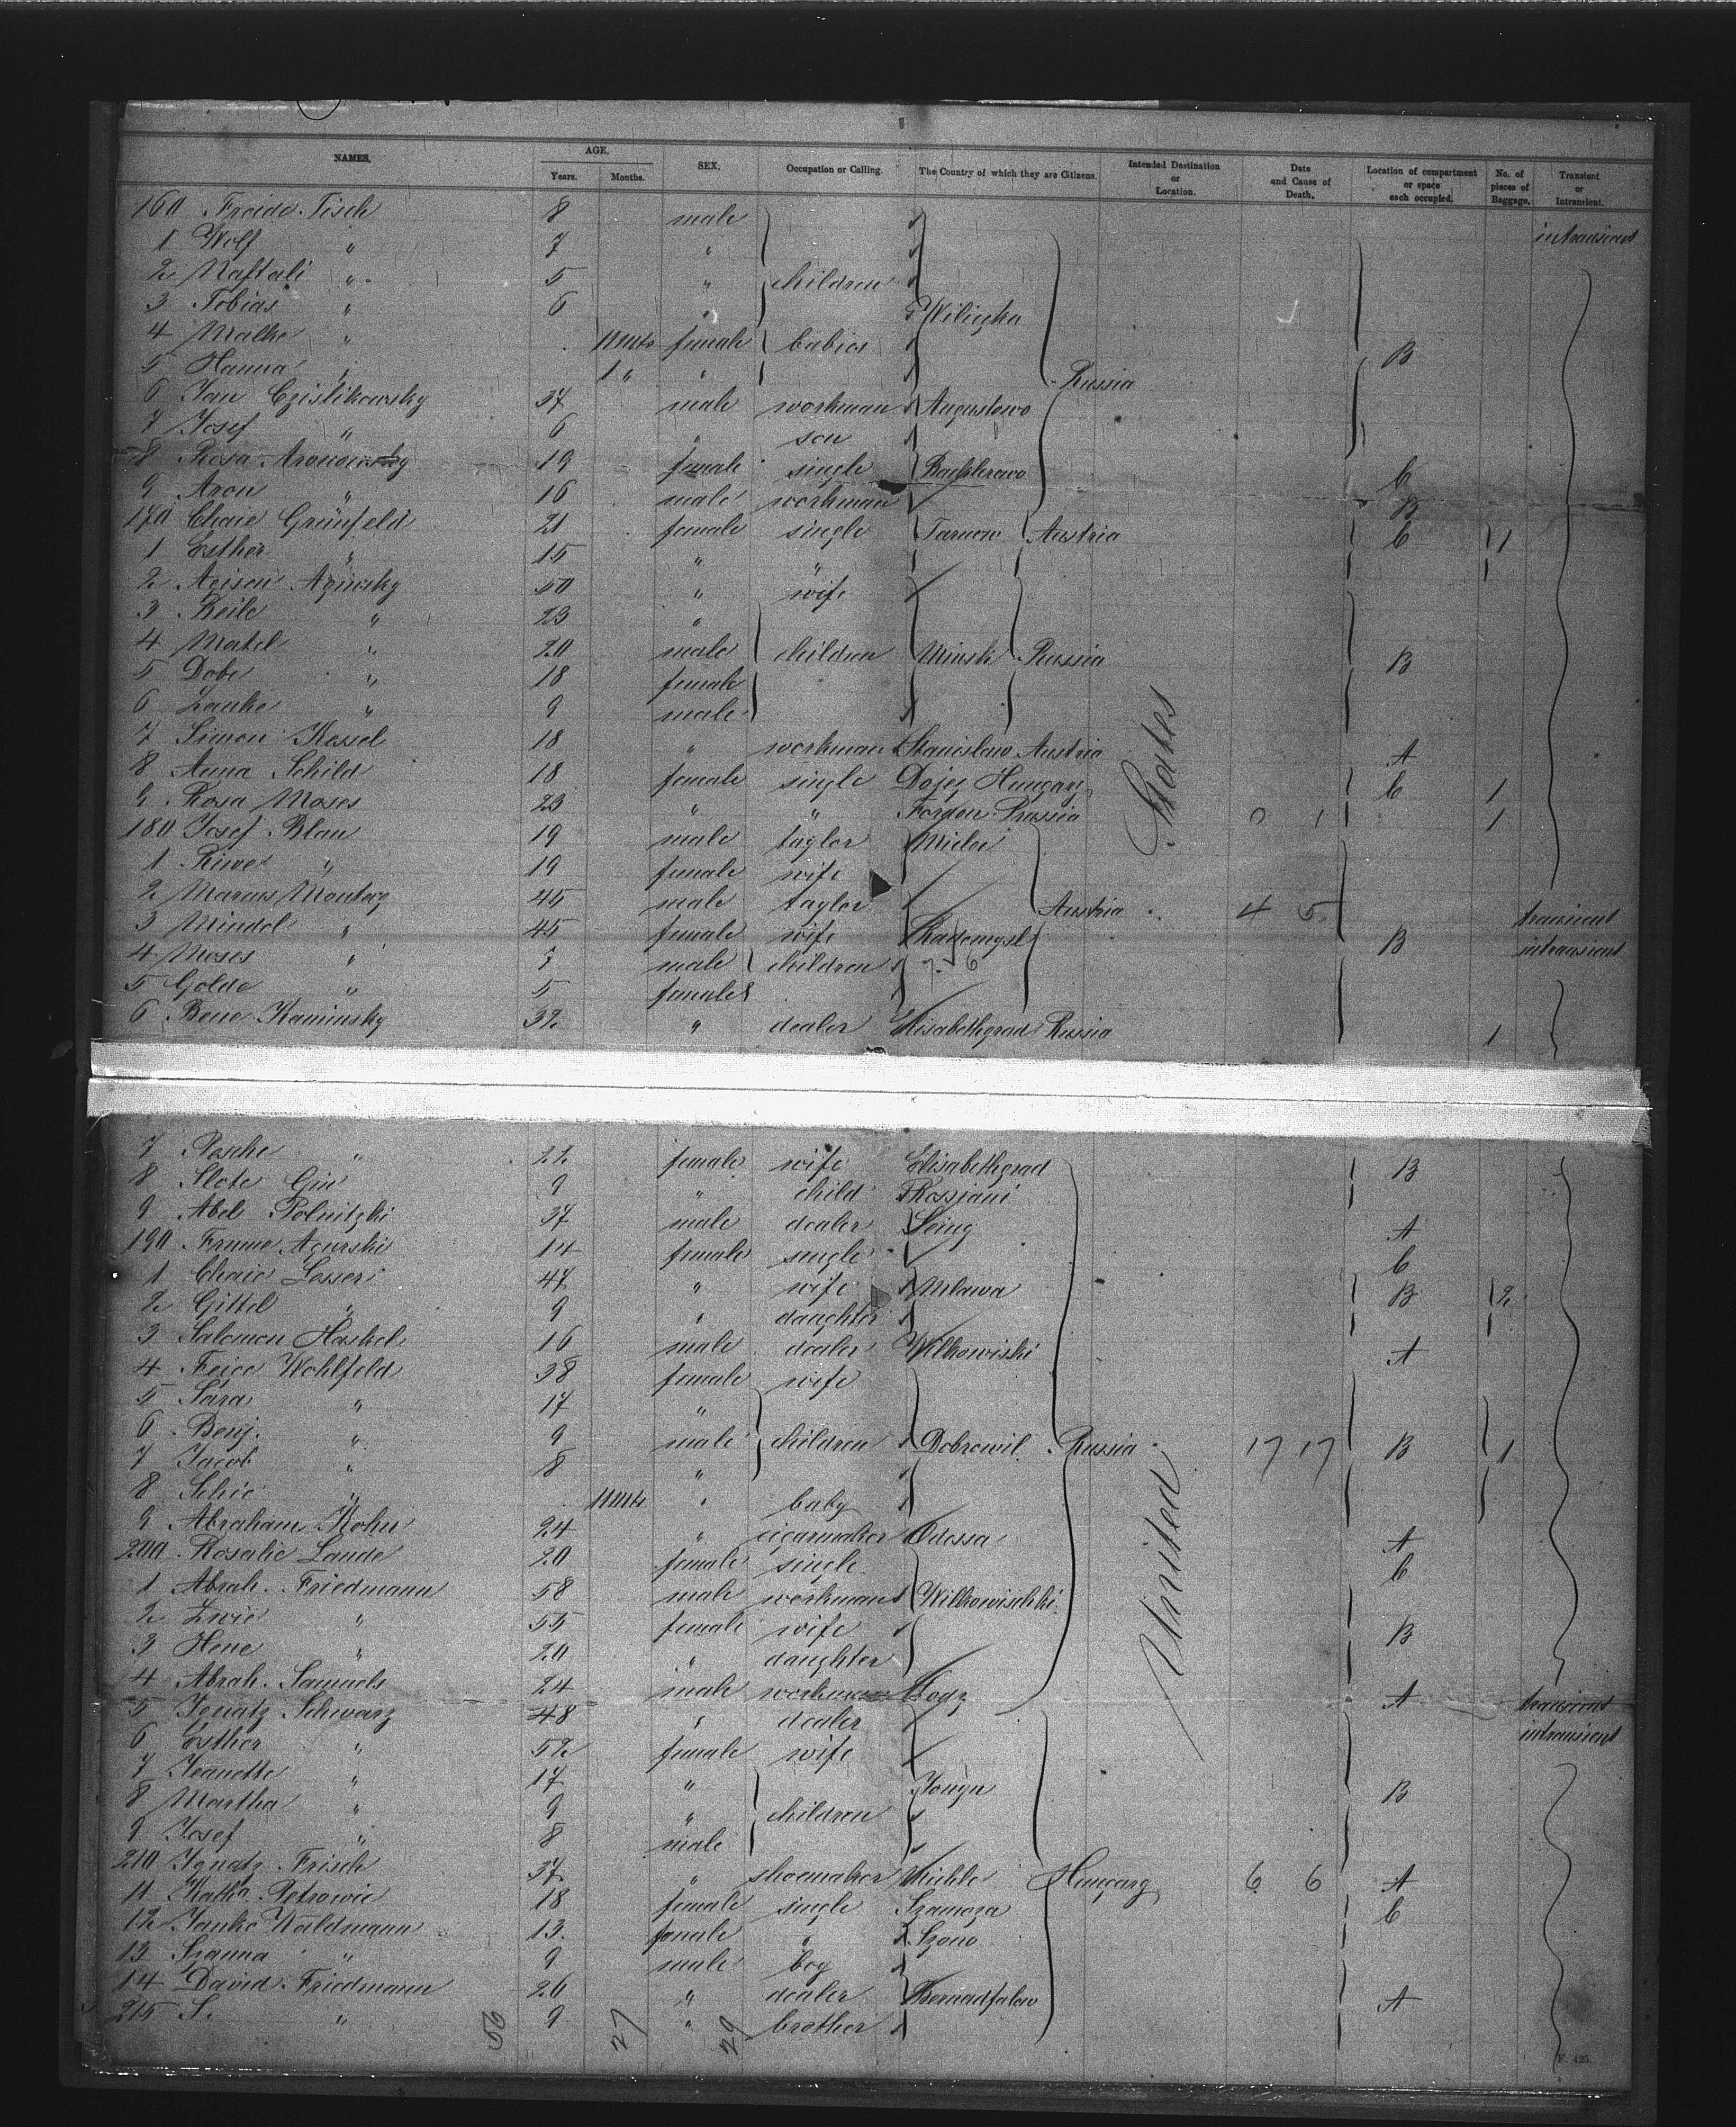 NAMES. AGE. Years. Months. SEX. Occupation or Calling. The Country of which they are Citizens. Intended Destination or Location. Date and Cause of Death. Location of compartment or space each occupied. No. of pieces of Baggage. Transient or Intransient.
160 Freide Tisch 8 male intransient
1 Wolf " 7 "
2 Naftali " 5 " children
3 Tobias " 6 " Wiliczka
4 Malke " 11 Mts female babies B
5 Hanna " 1 " " Russia
6 Jan Czislikowsky 37 male workman Augustowo
7 Josef " 6 " son
8 Rosa Aronowsky 19 female single C
9 Aron " 16 male workman B
170 Chaie Grünfeld 21 female single Tarnow Austria C 1
1 Esther " 15 " "
2 Azinsky 50 " wife
3 Keile " 23 "
4 Motel " 20 male children Minsk Russia B
5 Dobe " 18 female
6 Zanke " 9 male
7 Simon Kessel 18 " workman Stanislaw Austria A
8 Anna Schild 18 female single Dojez Hungary C 1
9 Rosa Moses 23 " " Fordon Prussia 0 1 1
180 Josef Blau 19 male taylor Mielei
1 Riwe " 19 female wife
2 Marcus Monberg 45 male taylor Austria 4 5 transient
3 Mindel " 45 female wife Radomysl B intransient
4 Moses " 7 male children 7 6
5 Golde " 5 female
6 Bene Kaminsky 32 " dealer Elisabethgrad Russia 1
7 Pesche " 22 female wife Elisabethgrad B
8 Slote Gin 9 " child Rossjani
9 Abel Polnitzki 37 male dealer Seing A
190 Frume Agurski 14 female single C
1 Chaie Lesser 47 " wife Mlawa B 2
2 Gittel " 9 " daughter
3 Salomon Haskel 16 male dealer Wilkowiski A
4 Feige Wohlfeld 38 female wife
5 Sara " 17 "
6 Benj. " 9 male children Dobrowil Russia 17 17 B 1
7 Jacob " 8 "
8 Schie " 11 Mts " baby
9 Abraham Kohn 24 " cigarmaker Odessa A
200 Rosalie Lande 20 female single C
1 Abrah. Friedmann 58 male workman Wilkowischki
2 Zwie " 55 female wife B
3 Hene " 20 " daughter
4 Abrah. Samuels 24 male workman Lodz A transient
5 Ignatz Schwarz 48 " dealer intransient
6 Esther " 52 female wife
7 Jeanette " 17 " B
8 Martha " 9 " children
9 Josef " 8 male
210 Ignatz Frisch 37 " shoemaker Hungary 6 6 A
11 Kath. Petrowic 18 female single C
12 Janko Waldmann 13 female "
13 Szanna " 9 male boy
14 David Friedmann 26 " dealer A
215 S. " 9 " brother
56 27 29
United States
F. 425.